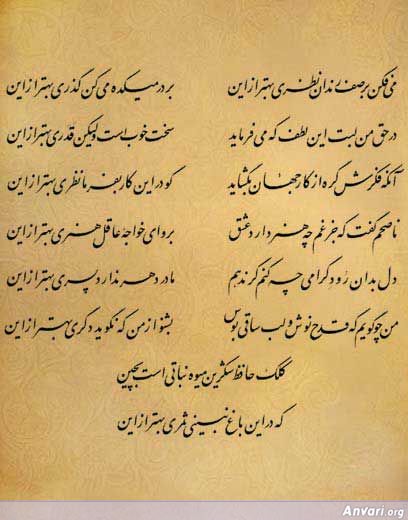 می فکن بر صف رندان نظری بهتر از این بر در میکده می کن گذری بهتر از این
در حق من لبت این لطف که می فرماید سخت خوب است ولیکن قدری بهتر از این
آنکه فکرش گره از کار جهان بگشاید گو در این کار بفرما نظری بهتر از این
ناصحم گفت که جز غم چه هنر دارد عشق بروای خواجهٔ عاقل هنری بهتر از این
دل بدان رود گرامی چه کنم گر ندهم مادر دهر ندارد پسری بهتر از این
من چو گویم که قدح نوش و لب ساقی بوس بشنو از من که نگوید دگری بهتر از این
کلک حافظ شکرین میوه نباتی است بچین
که در این باغ نبینی ثمری بهتر از این
Anvari.org